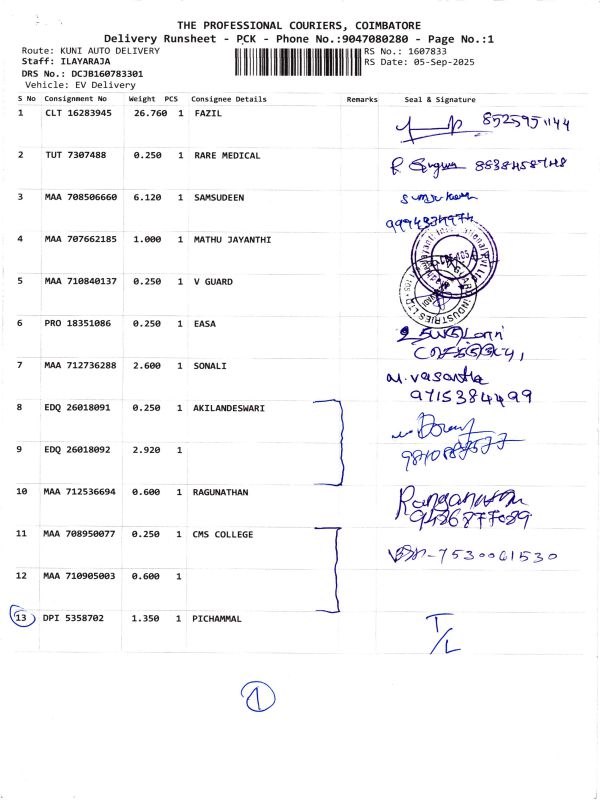 THE PROFESSIONAL COURIERS, COIMBATORE
Delivery Runsheet - PCK - Phone No.:9047080280 - Page No.:1
Route: KUNI AUTO DELIVERY RS No.: 1607833
Staff: ILAYARAJA RS Date: 05-Sep-2025
DRS No.: DCJB160783301
Vehicle: EV Delivery
S No Consignment No Weight PCS Consignee Details Remarks Seal & Signature
1 CLT 16283945 26.760 1 FAZIL 8525951144
2 TUT 7307488 0.250 1 RARE MEDICAL
3 MAA 708506660 6.120 1 SAMSUDEEN
4 MAA 707662185 1.000 1 MATHU JAYANTHI
5 MAA 710840137 0.250 1 V GUARD
6 PRO 18351086 0.250 1 EASA
7 MAA 712736288 2.600 1 SONALI M. Vasantha
9715384499
8 EDQ 26018091 0.250 1 AKILANDESWARI
9 EDQ 26018092 2.920 1
10 MAA 712536694 0.600 1 RAGUNATHAN
11 MAA 708950077 0.250 1 CMS COLLEGE 7530061530
12 MAA 710905003 0.600 1
13 DPI 5358702 1.350 1 PICHAMMAL T/L
1